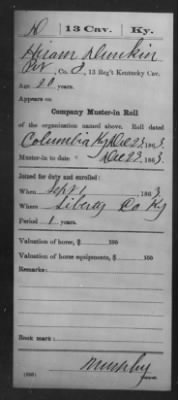 D | 13 Cav. | Ky.
Hiram Dunkin
Pvt, Co. D, 13 Reg't Kentucky Cav.
Age 20 years.
Appears on
Company Muster-in Roll
of the organization named above. Roll dated
Columbia Ky Dec 23, 1863.
Muster-in to date Dec 23, 1863.
Joined for duty and enrolled:
When Sept 1, 1863
Where Liberty Co Ky
Period 1 years.
Valuation of horse, $ 100
Valuation of horse equipments, $ 100
Remarks:
Book mark:
Murphy